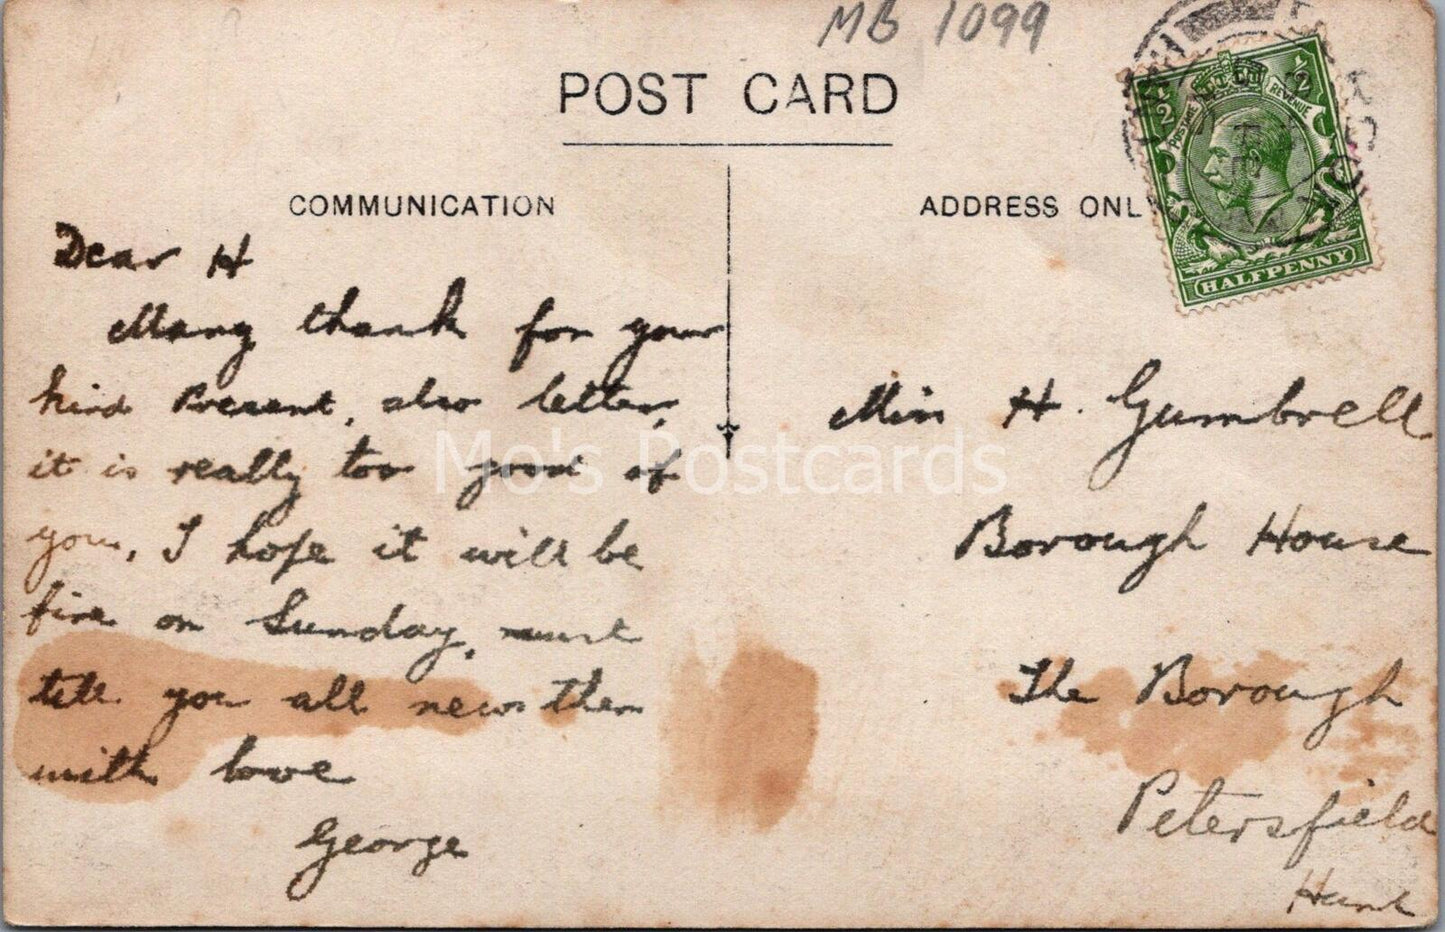 MB 1099
POST CARD
COMMUNICATION
ADDRESS ONLY
1/2 1/2
POSTAGE REVENUE
HALFPENNY
Dear H
Many thank for your
kind Present, also letter,
it is really too good of
you, I hope it will be
fine on Sunday, must
tell you all news then
with love
George
Miss H. Gumbrell
Borough House
The Borough
Petersfield
Hants
Mo's Postcards